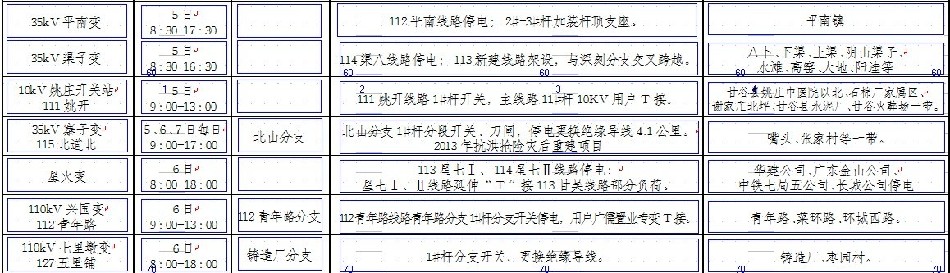 35kV 平南变
5日
8:30-17:30
112 平南线路停电; 2#-3#杆加装杆顶支座。
平南镇
35kV 渠子变
5日
8:30-16:30
114 渠八线路停电; 113 新建线路架设, 与深刻分支交叉跨越。
八卜、下渠、上渠、阴山渠子、
水滩、高窑、大地、阳洼等
10kV 姚庄开关站
111 姚开
5日
9:00-13:00
111 姚开线路 1#杆开关, 主线路 11#杆 10KV 用户 T 接.
甘谷县姚庄中医院以北,石棉厂家属区、
谢家庄北坪、甘谷县水泥厂、甘谷火鞋坡一带。
35kV 寨子变
115 北道北
5、6、7日每日
9:00-17:00
北山分支
北山分支 1#杆分段开关、刀闸, 停电更换绝缘导线 4.1 公里。
2013 年抗洪抢险灾后重建项目
嘴头、张家村等一带。
星火变
6日
8:00-18:00
113 星七Ⅰ、114 星七Ⅱ线路停电:
星七Ⅰ、Ⅱ线路延伸 "T" 接 113 甘关线路部分负荷。
华建公司、广东金山公司、
中铁七局五公司、长城公司停电
110kV 兴国变
112 青年路
6日
9:00-13:00
112 青年路分支
112青年路线路青年路分支 1#杆分支开关停电, 用户广厦置业专变 T 接。
青年路、菜环路、环城西路。
110kV 七里墩变
127 五里铺
6日
8:00-18:00
铸造厂分支
1#杆分支开关、更换绝缘导线。
铸造厂、枣园村。